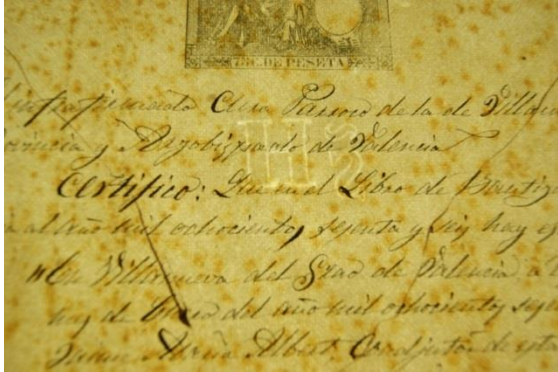 DE PESETA
infraescrito Cura Párroco de la de Villan
Provincia y Arzobispado de Valencia
Certifico: Que en el Libro de Bautis
al año mil ochocientos sesenta y seis hay
"En Villanueva del Grao de Valencia a
de Enero del año mil ochocientos
Albert Coadjutor de esta